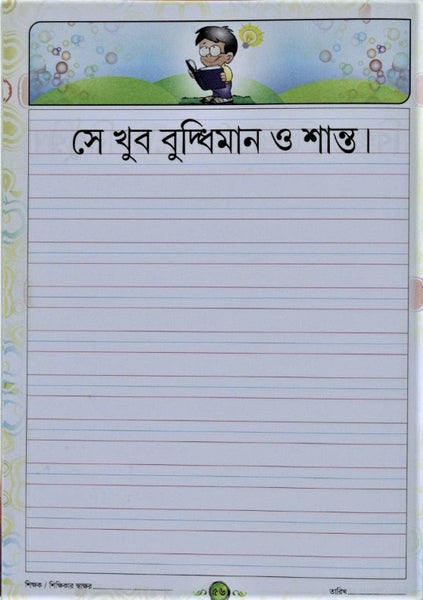 সে খুব বুদ্ধিমান ও শান্ত।
শিক্ষক / শিক্ষিকার স্বাক্ষর
৫৬
তারিখ